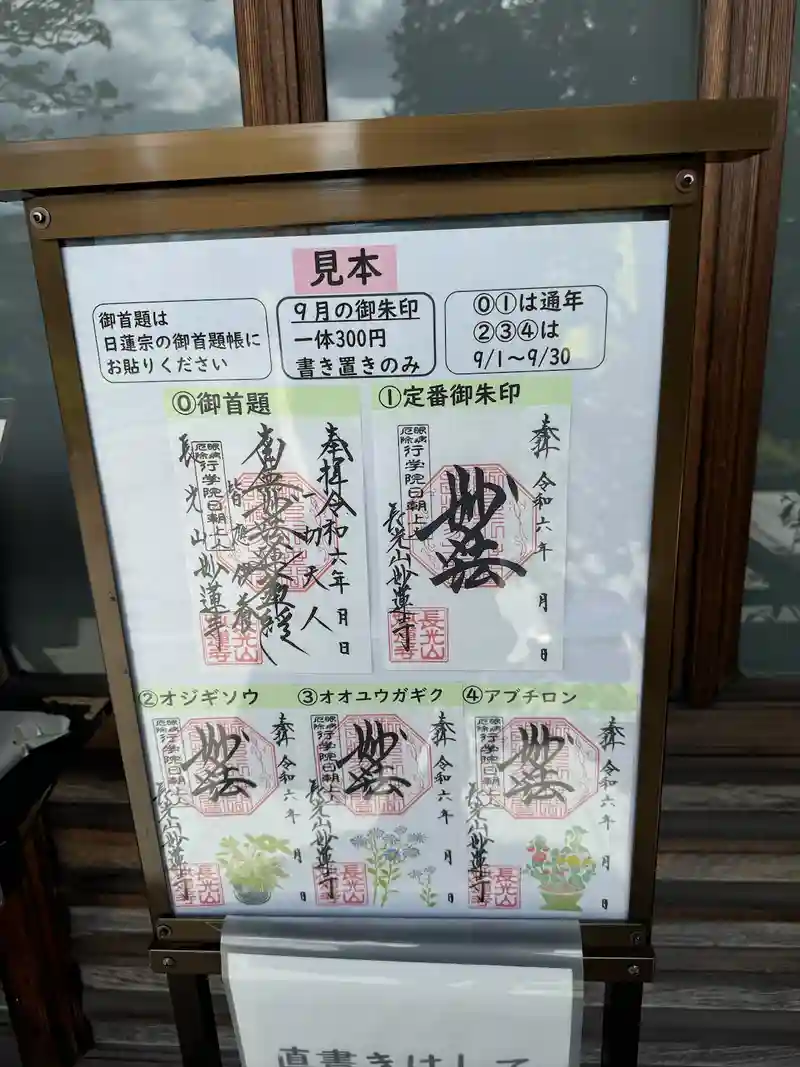 見本
御首題は
日蓮宗の御首題帳に
お貼りください
9月の御朱印
一体300円
書き置きのみ
⓪①は通年
②③④は
9/1〜9/30
⓪御首題
奉拝 令和六年 月 日
一切天人
南無妙法蓮華経
皆應供養
眼病
厄除
行学院日朝上人
長光山妙蓮寺
長光山
妙蓮寺
①定番御朱印
奉拝
令和六年 月 日
妙法
眼病
厄除
行学院日朝上人
長光山妙蓮寺
長光山
妙蓮寺
②オジギソウ
奉拝
令和六年 月 日
妙法
眼病
厄除
行学院日朝上人
長光山妙蓮寺
長光山
③オオユウガギク
奉拝
令和六年 月 日
妙法
眼病
厄除
行学院日朝上人
長光山妙蓮寺
長光山
④アブチロン
奉拝
令和六年 月 日
妙法
眼病
厄除
行学院日朝上人
長光山妙蓮寺
長光山
直書きはして